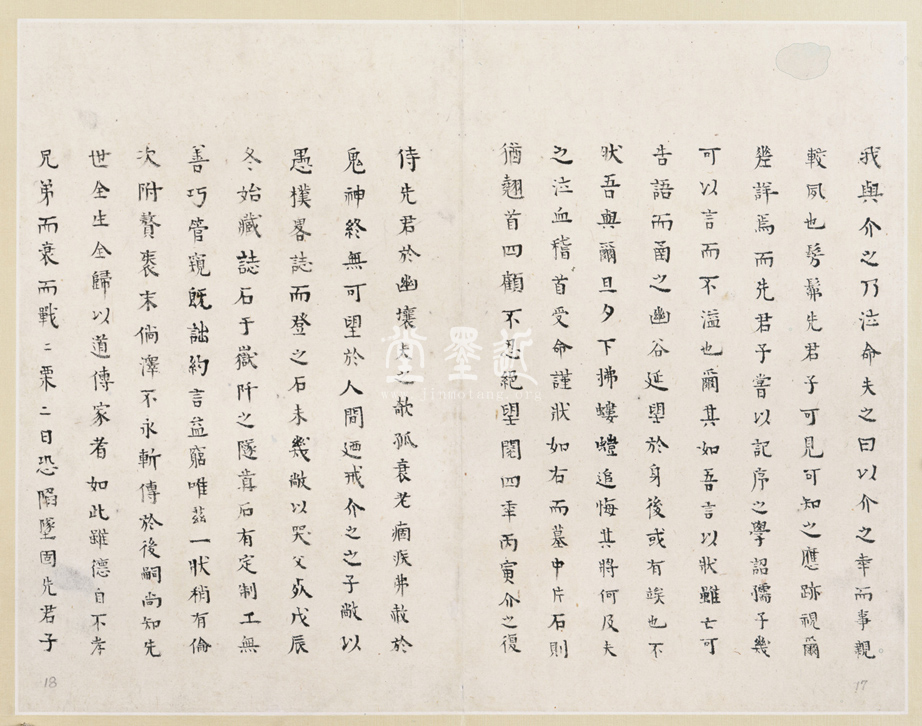 我與介之乃泣命夫之曰以介之年而事親
較夙也髣髴先君子可見可知之應跡視爾
差詳焉而先君子嘗以記序之學詔孺子幾
可以言而不溢也爾其如吾言以狀雖亡可
告語而函之幽谷延望於身後或有竢也不
狀吾與爾旦夕下拂螻螘追悔其將何及夫
之泣血稽首受命謹狀如右而墓中片石則
猶翹首四顧不忍絕望閱四年丙寅介之復
17
侍先君於幽壤夫之煢孤衰老痼疾弗赦於
鬼神終無可望於人間廼戒介之之子敞以
愚樸畧誌而登之石未幾敞以哭父歿戊辰
冬始藏誌石于嶽阡之隧石有定制工無
善巧管窺既詘約言益窮唯茲一狀稍有倫
次附贅袠末倘澤不永斬傳於後嗣尚知先
世全生全歸以道傳家者如此雖德自不孝
兄弟而衰而戰二栗二日恐隕墜固先君子
18
近墨堂
www.jinmotang.org